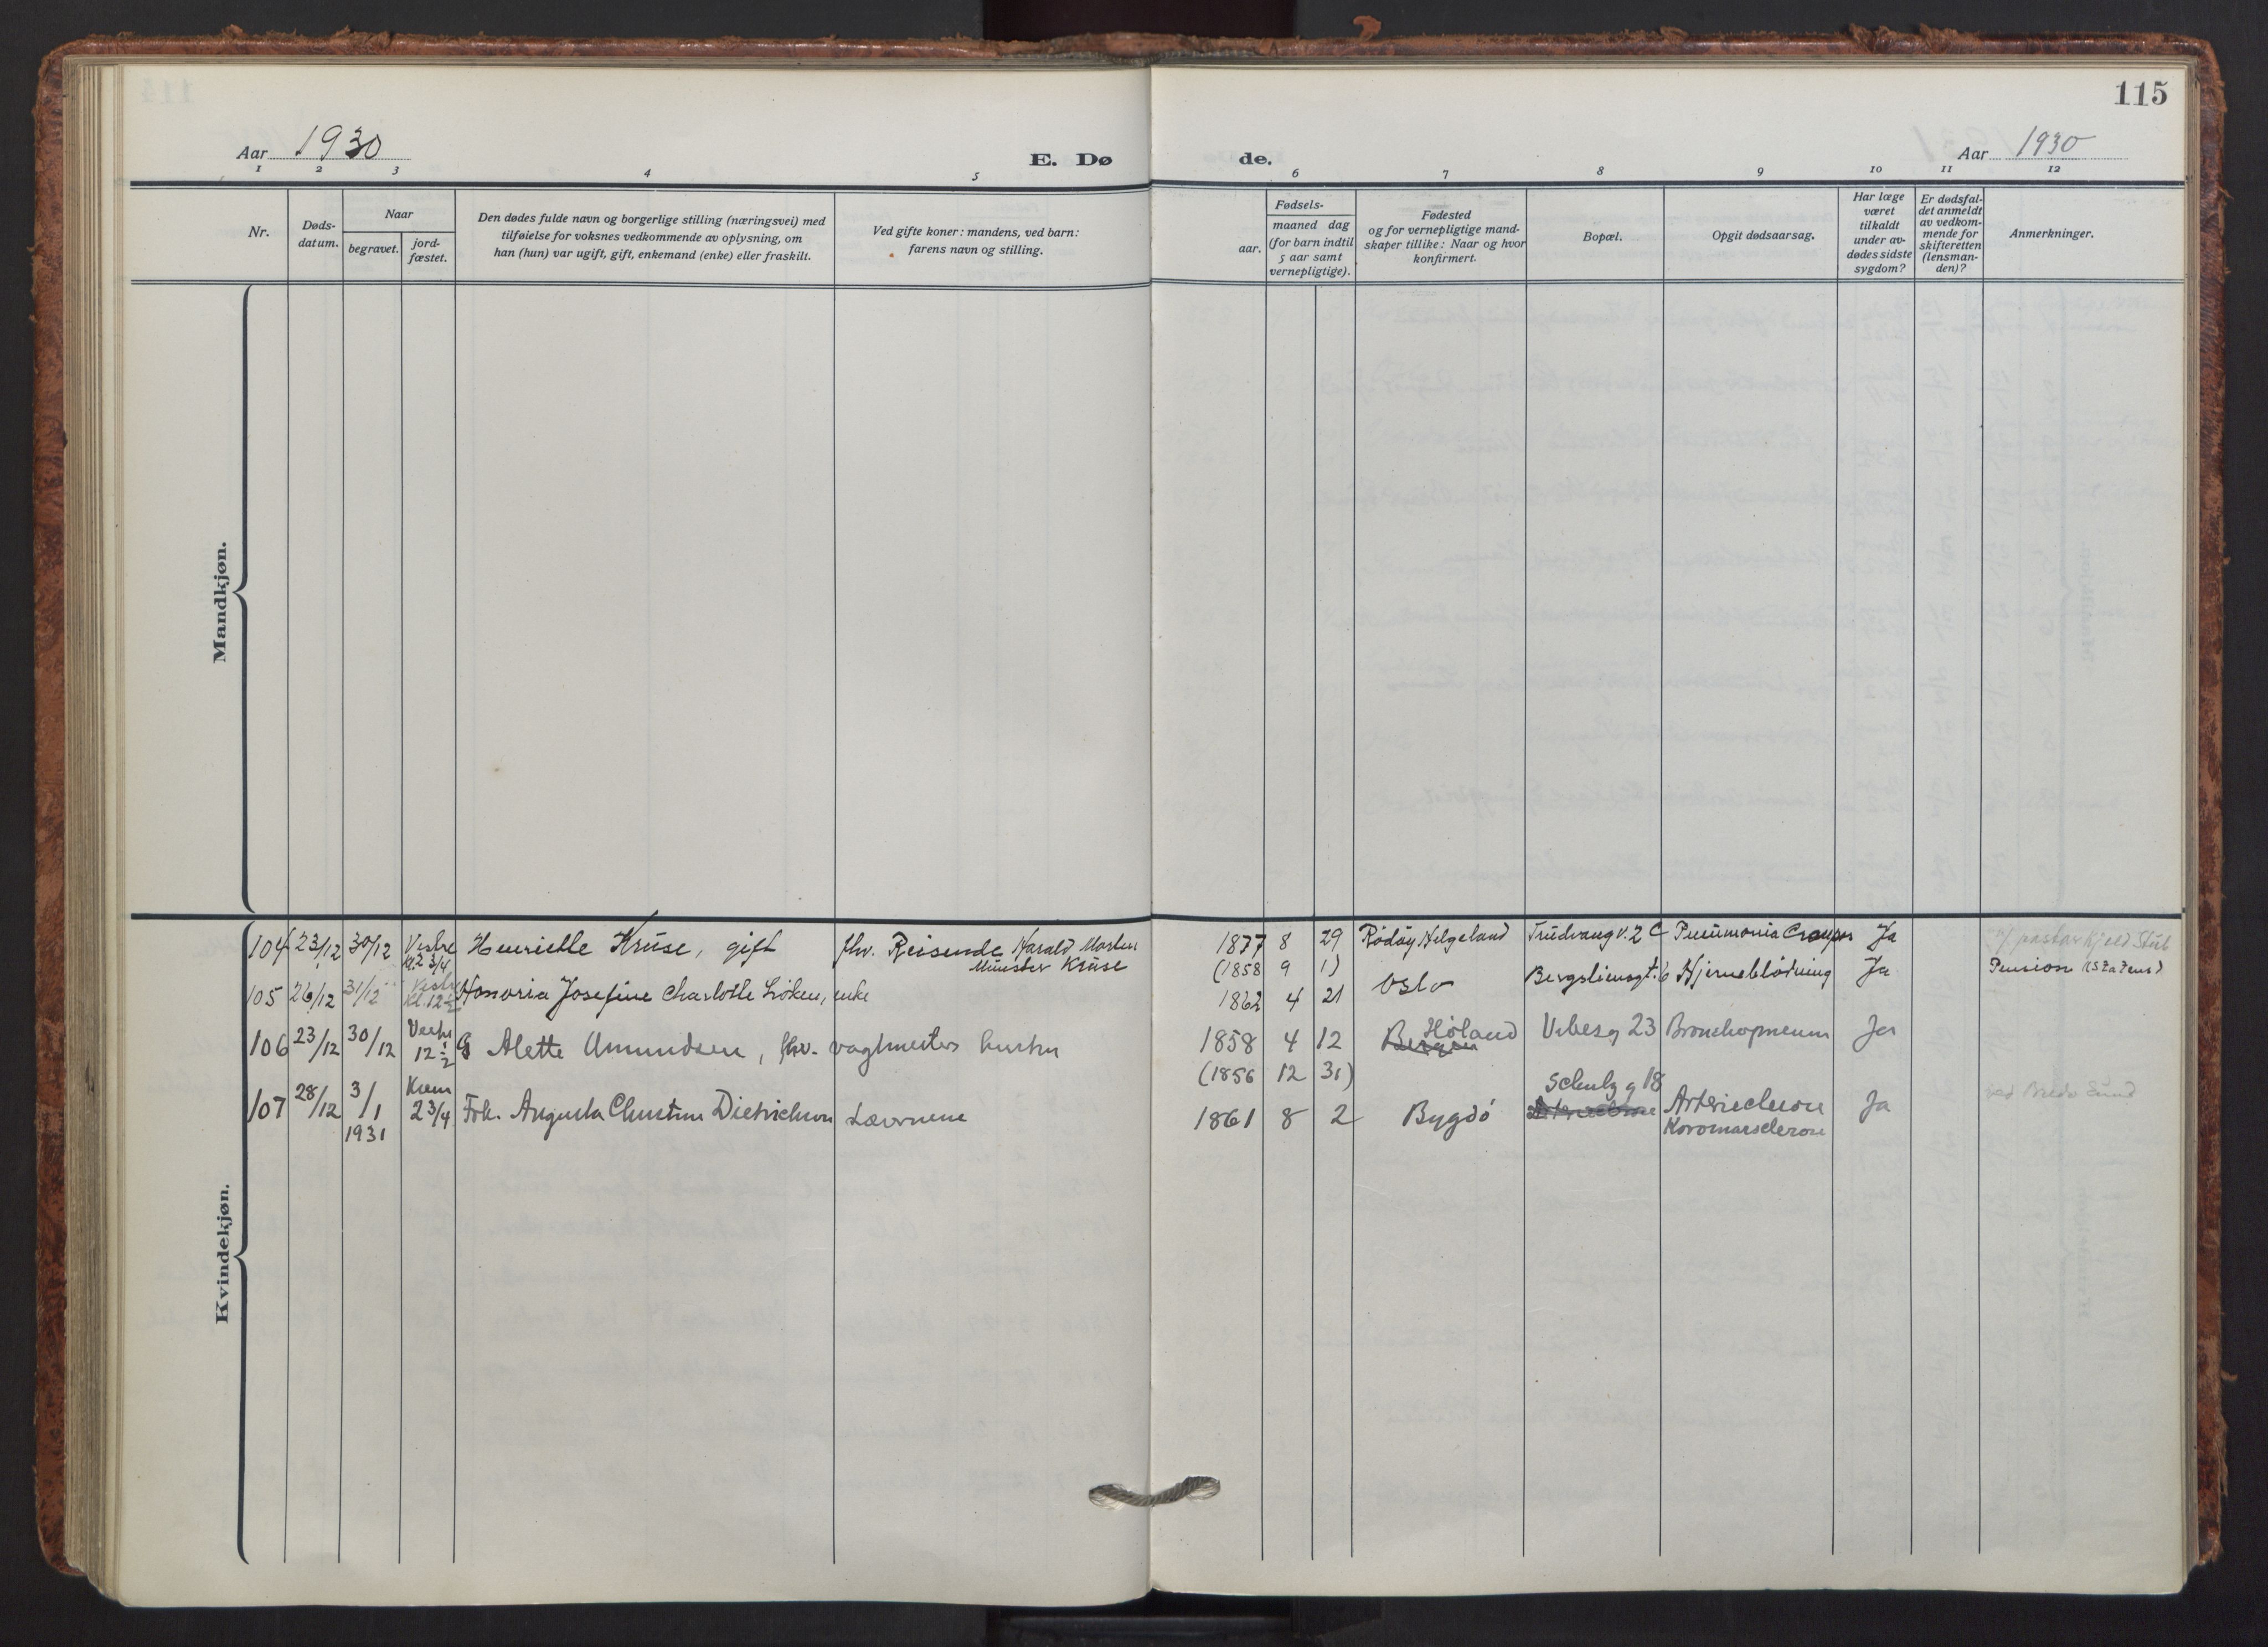 115
Aar 1930
E. Dø
de.
Aar 1930
1 2 3 4 5 6 7 8 9 10 11 12
Nr.
Døds-
datum.
Naar
begravet.
jord-
fæstet.
Den dødes fulde navn og borgerlige stilling (næringsvei) med
tilføielse for voksnes vedkommende av oplysning, om
han (hun) var ugift, gift, enkemand (enke) eller fraskilt.
Ved gifte koner: mandens, ved barn:
farens navn og stilling.
Fødsels-
aar.
maaned dag
(for barn indtil
5 aar samt
vernepligtige).
Fødested
og for vernepligtige mand-
skaper tillike: Naar og hvor
konfirmert.
Bopæl.
Opgit dødsaarsag.
Har læge
været
tilkaldt
under av-
dødes sidste
sygdom?
Er dødsfal-
det anmeldt
av vedkom-
mende for
skifteretten
(lensman-
den)?
Anmerkninger.
Mandkjøn.
Kvindekjøn.
104 23/12 30/12 Vestre kl. 2 3/4 Henriette Kruse, gift fhv. Reisende Harald Morten
Münster Kruse
1877 8 29 Rödöy Helgeland Trudvangv. 2 C Pneumonia Ja pastor Kjeld Stub
(1858 9 1)
105 26/12 31/12 Vestre Kl. 12 1/2 Honoria Josefine Charlotte Löken, enke
1862 4 21 Oslo Bergsliensgt. 6 Hjerneblödning Ja Pension
106 23/12 30/12 Vestre 12 1/2 Alette Amundsen, fhv. vagtmesters hustru
1858 4 12 Bergen Høland Vibesg 23 Bronchopneum Ja
(1856 12 31)
107 28/12 3/1 1931 Krem 2 3/4 Frk. Augusta Christine Dietrichson Lærerinne
1861 8 2 Bygdö Schultzg 18 Ja
ved Bredo Lund